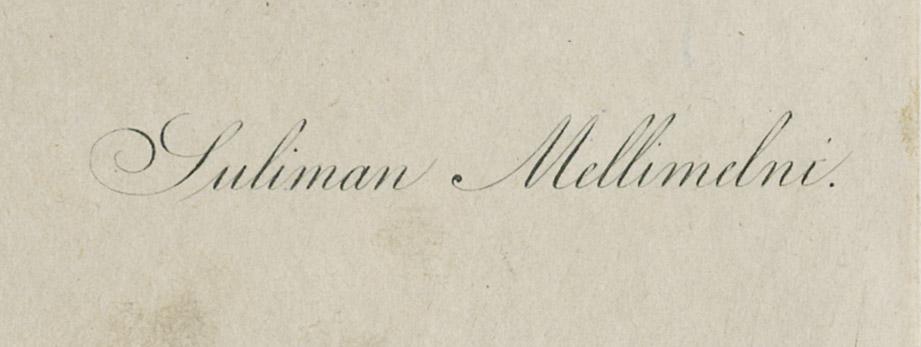 Suliman Mellimelni.